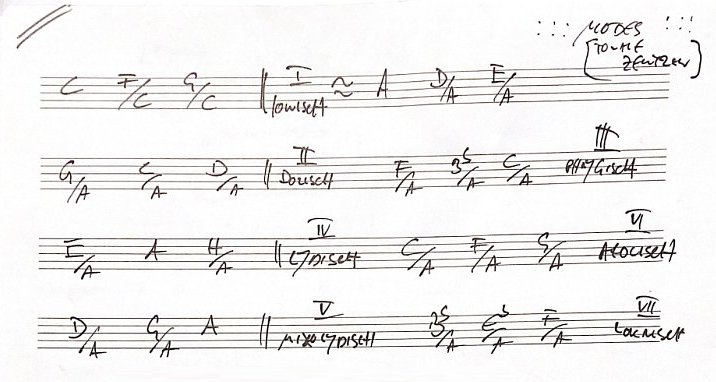 MODES
TONALE
ZENTREN
C F/C G/C || I Ionisch ≈ A D/A E/A
G/A C/A D/A || II Dorisch F/A Bb/A C/A III Phrygisch
E/A A H/A || IV Lydisch C/A F/A G/A VI Aeolisch
D/A G/A A || V Mixolydisch Bb/A Eb/A F/A VII Lokrisch